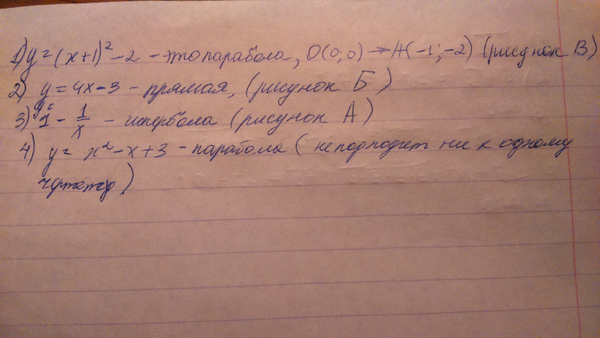 1) y = (x+1)² - 2 - это парабола, O(0;0) → A(-1;-2) (рисунок В)
2) y = 4x - 3 - прямая, (рисунок Б)
3) y = 1 - 1/x - гипербола (рисунок А)
4) y = x² - x + 3 - парабола (не подходит ни к одному
чертежу)